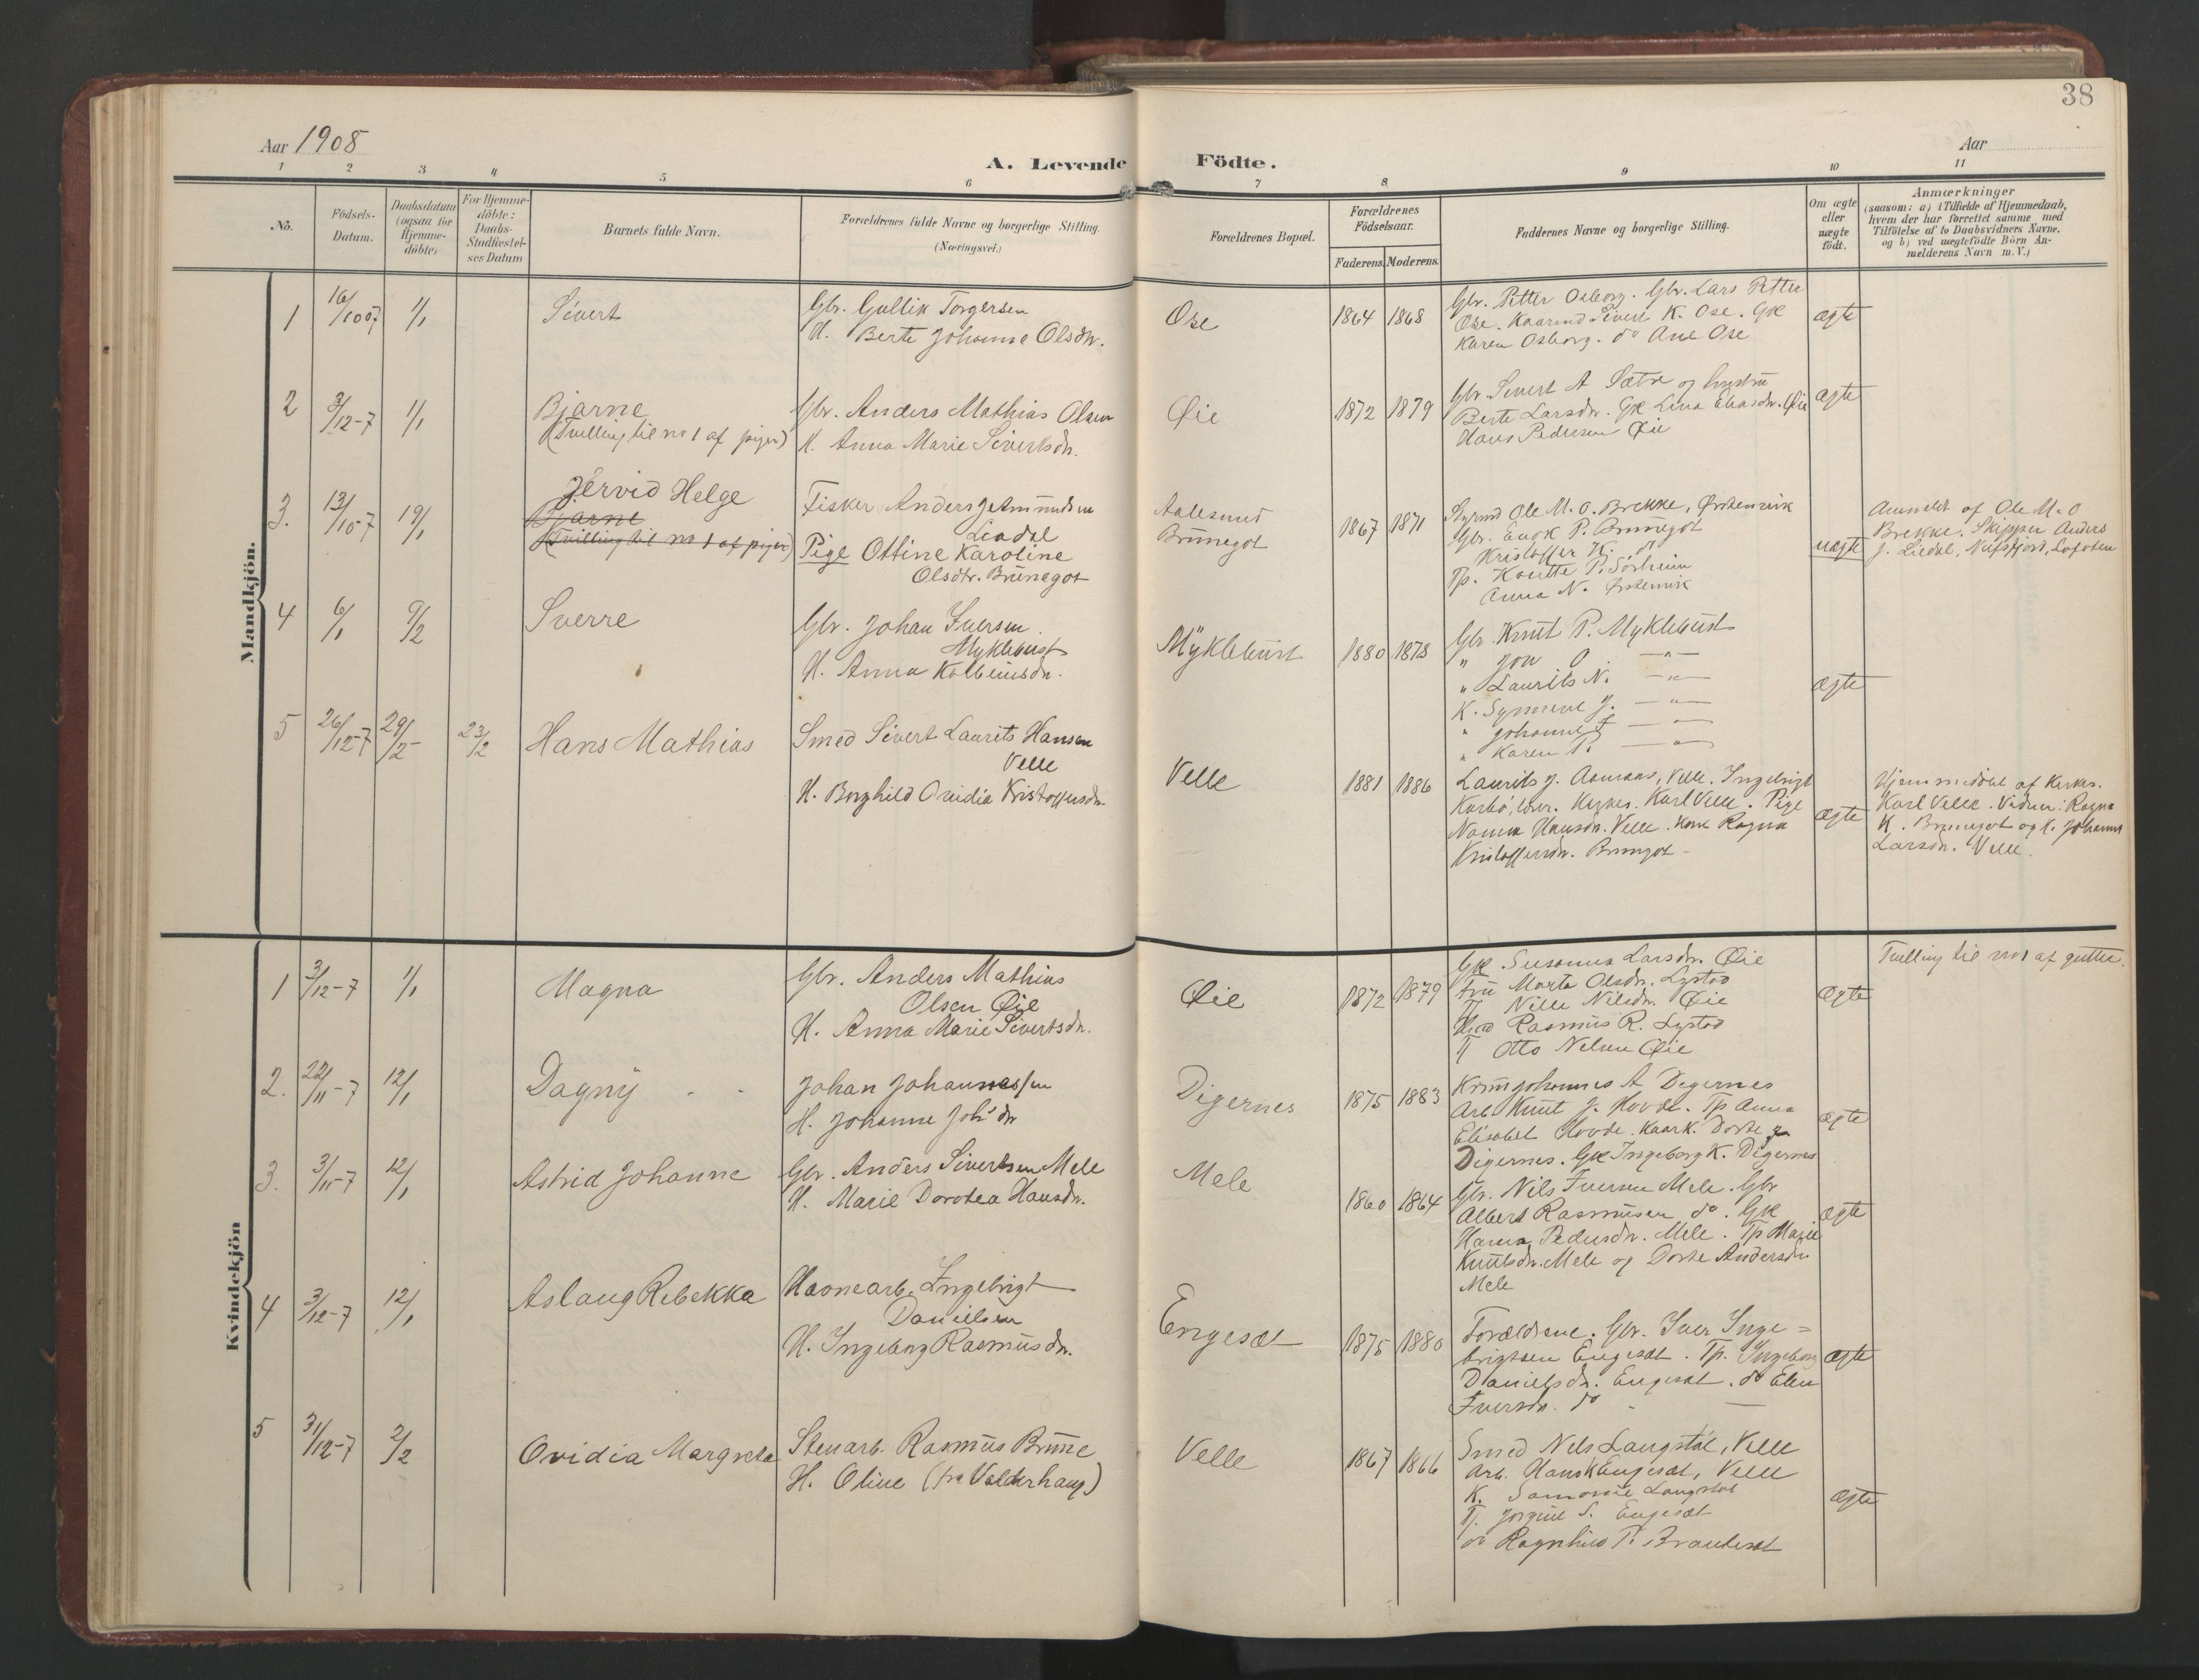 38
Aar 1908
Aar
A. Levende Födte.
1 2 3 4 5 6 7 8 9 10 11
No.
Födsels-
Datum.
Daabsdatum
(ogsaa for
Hjemme-
döbte)
For Hjemme-
döbte:
Daabs-
Stadfæstel-
ses Datum
Barnets fulde Navn.
Forældrenes fulde Navne og borgerlige Stilling.
(Næringsvei.)
Forældrenes Bopæl.
Forældrenes
Födselsaar.
Faderens. Moderens.
Faddernes Navne og borgerlige Stilling.
Om ægte
eller
uægte
födt.
Anmærkninger
(saasom: a) i Tilfælde af Hjemmedaab,
hvem der har forrettet samme med
Tilföielse af to Daabsvidners Navne,
og b) ved uægtefödte Börn An-
melderens Navn m.V.)
Mandkjön.
1
16/10 07
1/1
Sivert
Gbr. Gullik Torgersen
H. Berte Johanne Olsdtr.
Ose
1864 1868
Gbr. Petter Osborg. Gbr. Lars Petter
Ose. Sivert K. Ose. Gk
Karen Osborg. do Ane Ose
ægte
2
3/12-7
1/1
Bjarne
(Tvilling til no 1 af piger)
Gbr. Anders Mathias Olsen
H. Anna Marie Sivertsdr.
Øie
1872 1879
Gbr. Sivert A Sætre og hustru
Berte Larsdr. Gk Lina Eliasdr. Øie
Hans Pedersen Øie
ægte
3.
13/10-7
19/1
Jervid Helge
Bjarne
(Tvilling til no 1 af piger)
Fisker Anders Jetmundsen
Liadal
Pige Ottine Karoline
Olsdtr. Brunegot
Aalesund
Brunegot
1867 1871
Styrmd Ole M. O. Brekke, Ørstenvik
Gbr. Enok P. Brunegot
Kristoffer K. do
Tp. P. Sörheim
Anna N. Ørstenvik
uægte
Anmeldt af Ole M. O
Brekke. Skipper Anders
J. Liadal, Nufsfjord, Lofoten
4
6/1
9/2
Sverre
Gbr. Johan Iversen
Myklebust
H. Anna Kolbeinsdr.
Myklebust
1880 1878
Gbr Knut P. Myklebust
" Jon O. — " —
" Laurits N. — " —
K. Synneve J. — " —
" Johanne J — " —
" Karen P. — " —
ægte
5
26/12-7
29/2-
23/2
Hans Mathias
Smed Sivert Laurits Hansen
Velle
H. Borghild Ovidia Kristoffersdr.
Velle
1881 1886
Laurits J. Aamaas, Velle. Ingebrigt
Karbö, Karl Velle. Pige
Hansdr. Velle. Kone Ragna
Kristoffersdr. Brungot
ægte
Hjemmedöbt af Kirkes.
Karl Velle. Vidner: Ragna
K. Brunegot og K. Johanne
Larsdr. Velle.
Kvindekjön
1
3/12-7
1/1
Magna
Gbr. Anders Mathias
Olsen Øie
H. Anna Marie Sivertsdr.
Øie
1872 1879
Gk Susanna Larsdr. Øie
Fru Marta Olsdr. Lystad
Tj Nille Nilsdr. Øie
Rasmus R. Lystad
Tj Otto Nelsen Øie
ægte
Tvilling til no 1 af gutter.
2.
22/11-7
12/1
Dagny
Johan Johannessen
H. Johanne Johs dr
Digernes
1875 1883
Johannes A Digernes
Arb Knut J. Hovde. Tp Anna
Elisabet Hovde. Kaark. Dorte J
Digernes. Gk Ingeborg K. Digernes
ægte
3.
3/11-7
12/1
Astrid Johanne
Gbr. Anders Sivertsen Mele
H. Marie Dorotea Hansdr.
Mele
1860 1864
Gbr. Nils Iversen Mele. Gbr
Albert Rasmusen do. Gk
Hanna Pedersdr. Mele. Tp Marie
Knutsdr. Mele og Dorte Andersdr.
Mele
ægte
4
3/12-7
12/1
Aslaug Rebekka
Havnearb. Ingebrigt
Danielsen
H. Ingeborg Rasmusdr.
Engeset
1875 1880
Forældrene. Gbr. Iver Inge=
brigtsen Engeset. Tp. Ingeborg
Danielsdr. Engeset. do Elen
Iversdr. do
ægte
5
31/12-7
2/2
Ovidia Margreta
Stenarb. Rasmus Brune
H. Oline (fra Valderhaug)
Velle
1867 1866
Smed Nels Langstöl, Velle
Arb. Hans K Engeset, Velle
K. Samonie Langstöl
Tj. Jorgine S. Engeset
do Ragnhild P. Brauteset
ægte